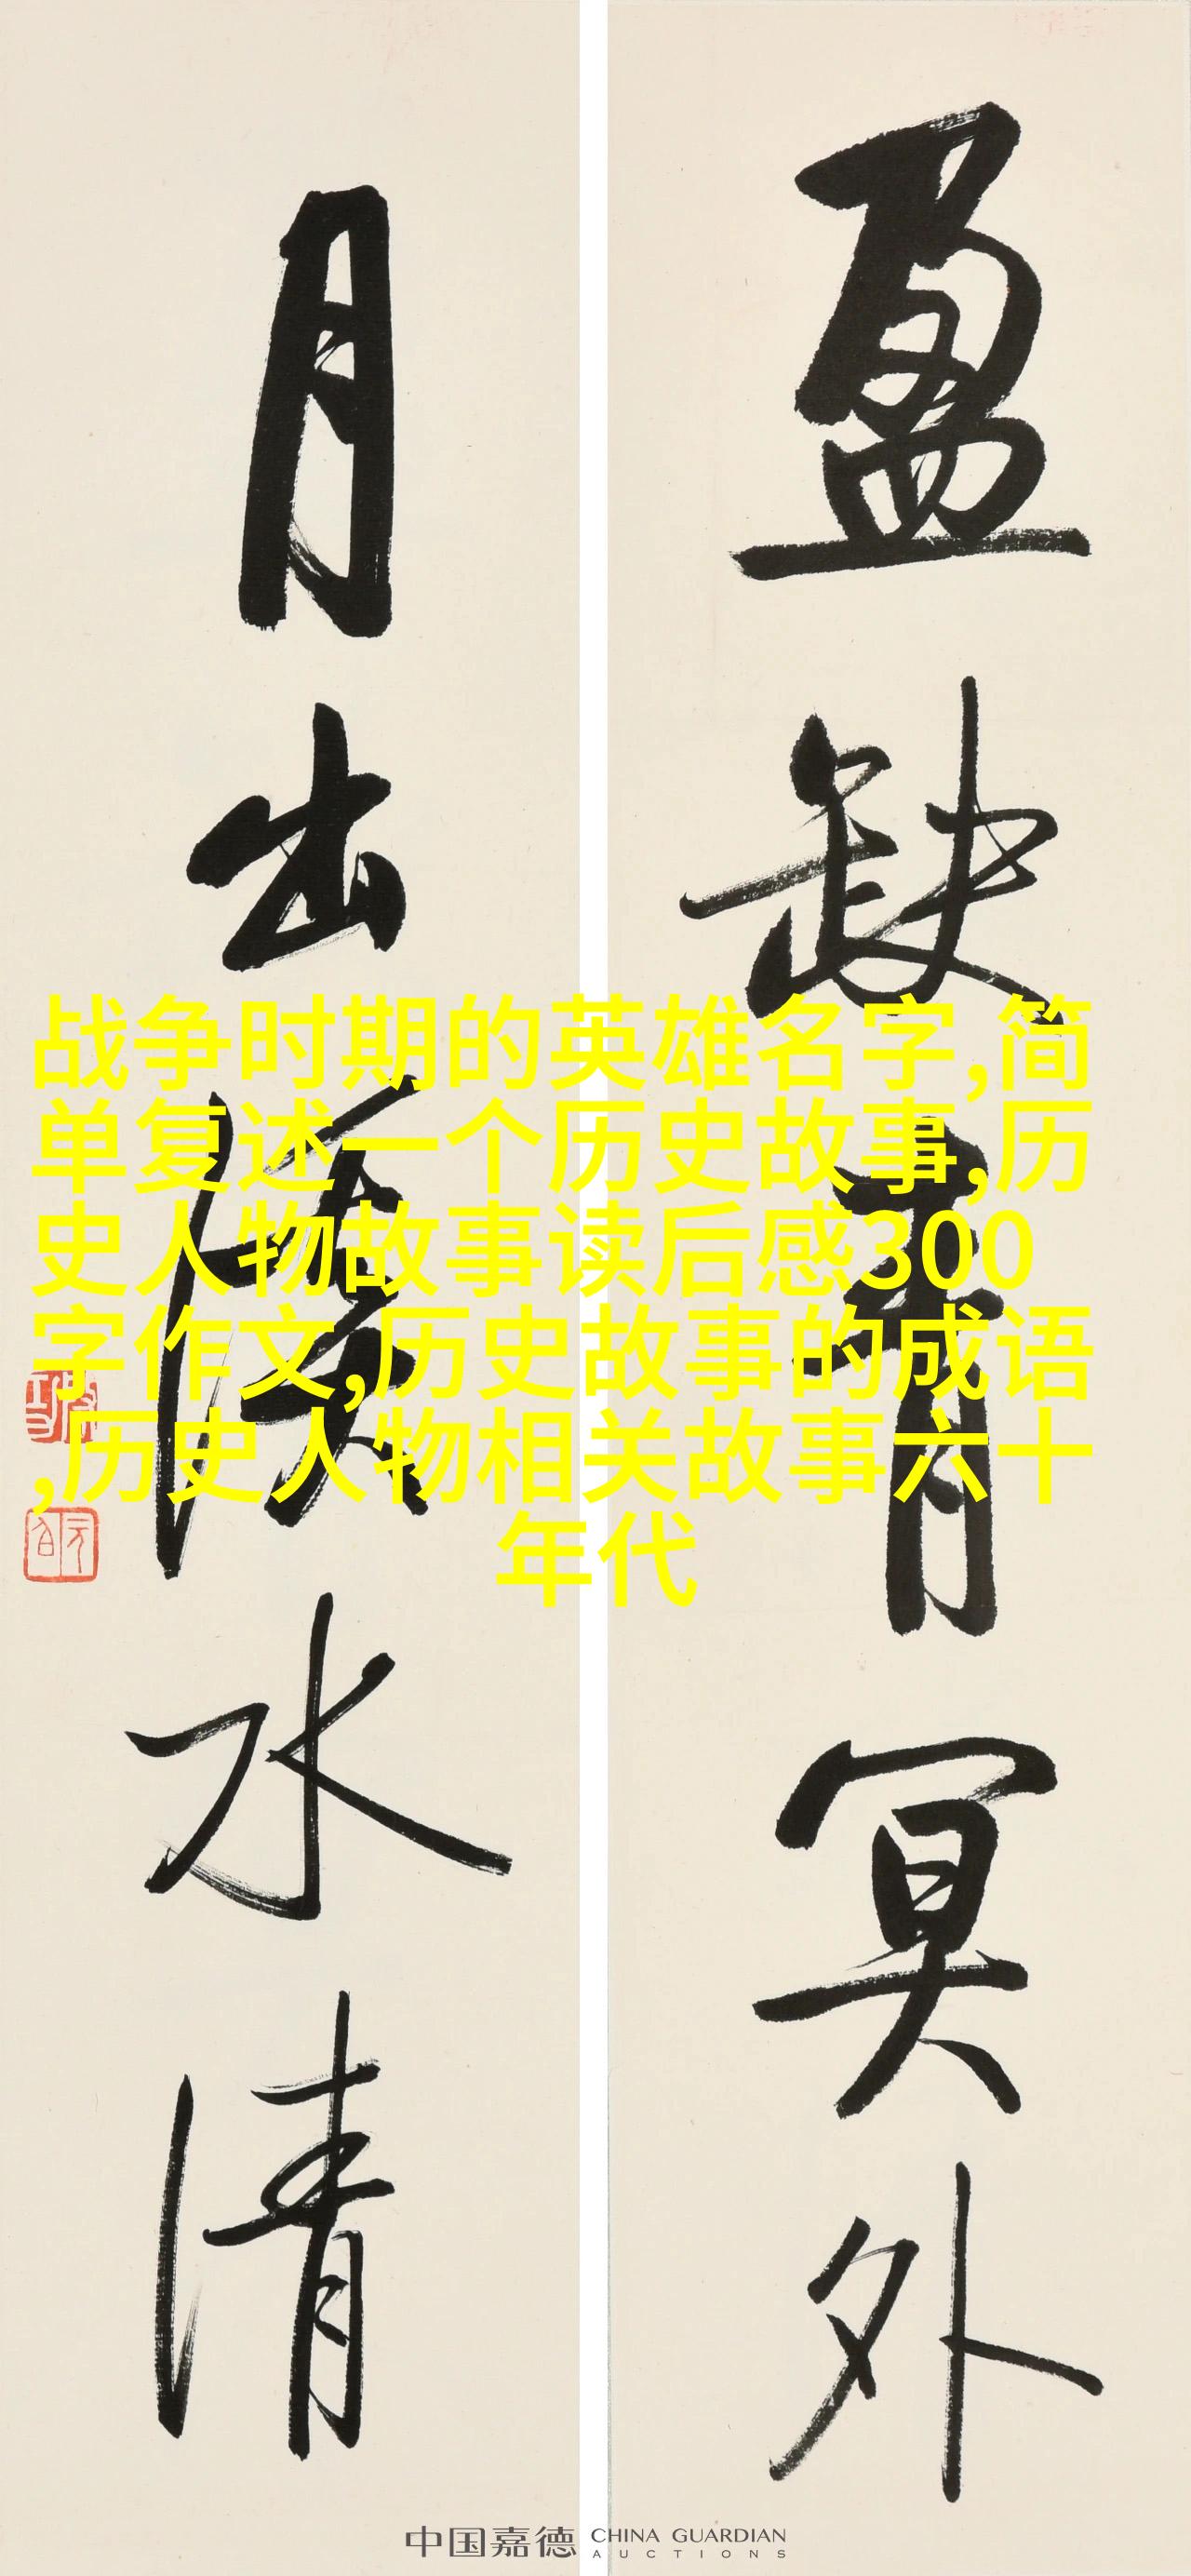 盈缺青冥外
月出溪水清
战争时期的英雄名字,简
单复述一个历史故事,历
史人物故事读后感300
字作文,历史故事的成语
,历史人物相关故事六十
年代
中国嘉德 CHINA GUARDIAN
AUCTIONS